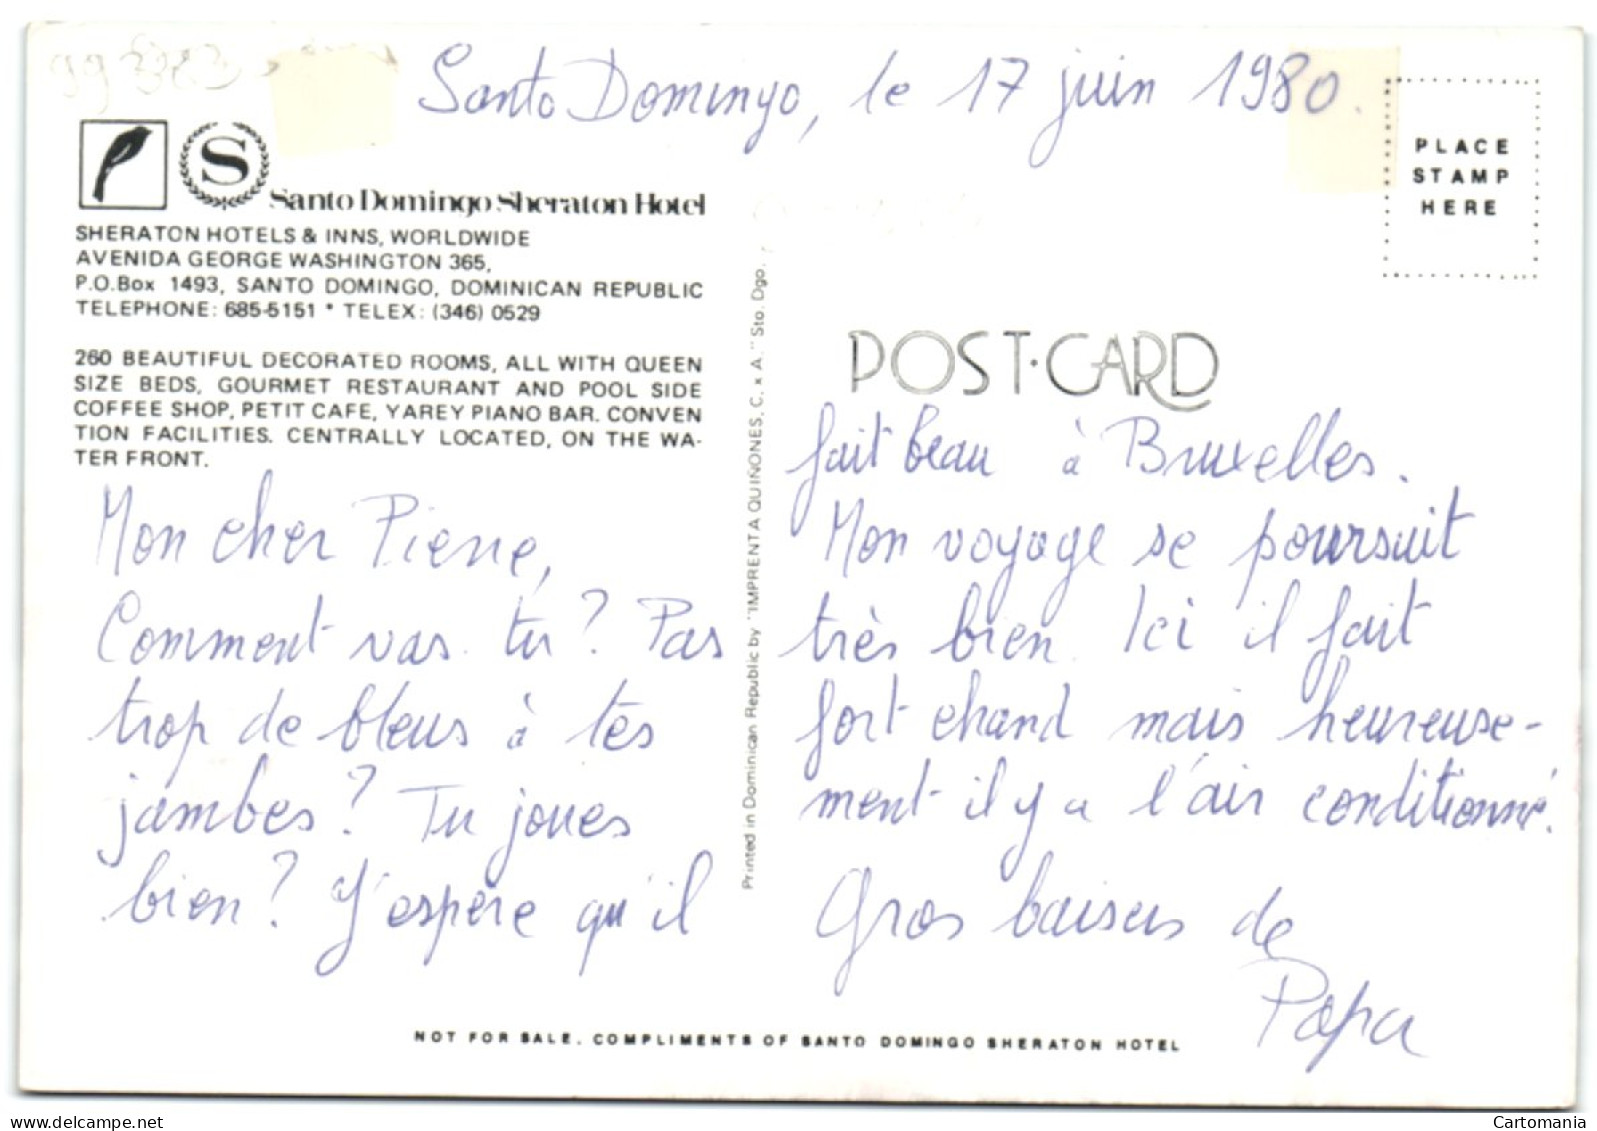 99 323
Santo Domingo, le 17 juin 1980.
PLACE
STAMP
HERE
S
Santo Domingo Sheraton Hotel
SHERATON HOTELS & INNS, WORLDWIDE
AVENIDA GEORGE WASHINGTON 365,
P.O.Box 1493, SANTO DOMINGO, DOMINICAN REPUBLIC
TELEPHONE: 685-5151 * TELEX: (346) 0529
260 BEAUTIFUL DECORATED ROOMS, ALL WITH QUEEN
SIZE BEDS, GOURMET RESTAURANT AND POOL SIDE
COFFEE SHOP, PETIT CAFE, YAREY PIANO BAR. CONVEN
TION FACILITIES. CENTRALLY LOCATED, ON THE WA-
TER FRONT.
Mon cher Pierre,
Comment vas tu? Pas
trop de bleus à tes
jambes? Tu joues
bien? J'espère qu'il
Printed in Dominican Republic by "IMPRENTA QUIÑONES, C. x A." Sto. Dgo.
POST·CARD
fait beau à Bruxelles.
Mon voyage se poursuit
très bien. Ici il fait
fort chaud mais heureuse-
ment il y a l'air conditionné.
Gros baisers de
Papa
NOT FOR SALE. COMPLIMENTS OF SANTO DOMINGO SHERATON HOTEL
Cartomania